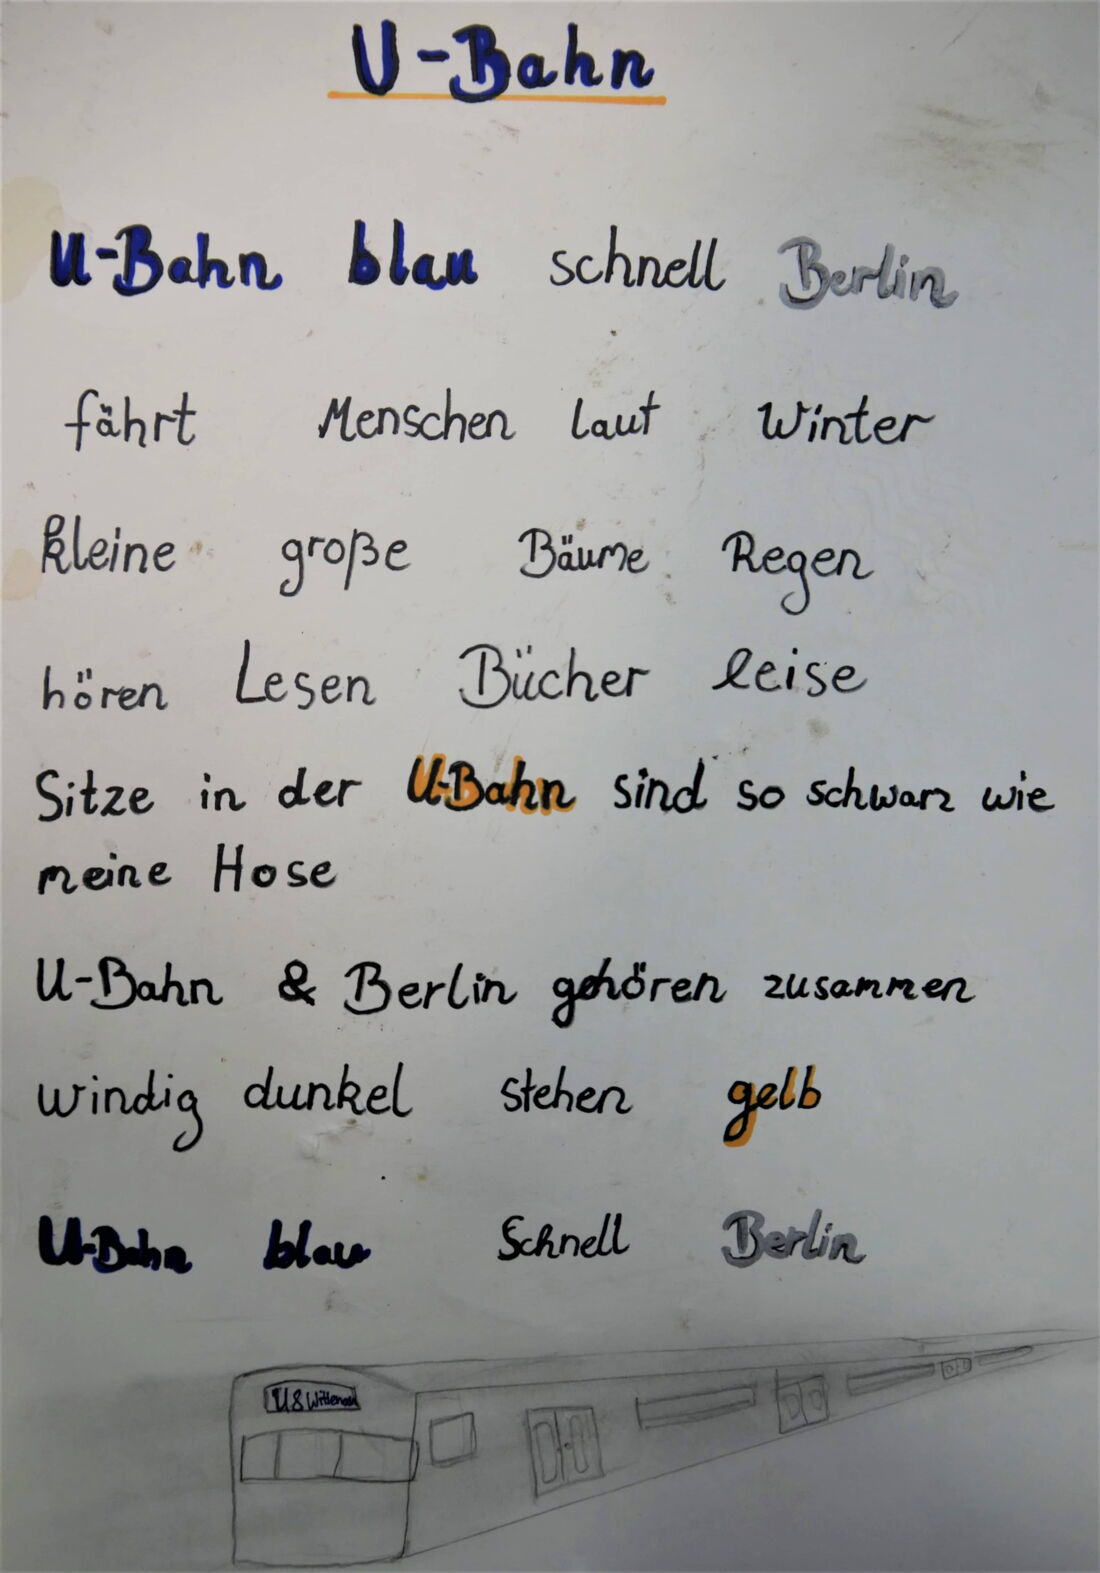 U-Bahn
U-Bahn blau schnell Berlin
fährt Menschen laut Winter
kleine große Bäume Regen
hören Lesen Bücher leise
Sitze in der U-Bahn sind so schwarz wie
meine Hose
U-Bahn & Berlin gehören zusammen
windig dunkel stehen gelb
U-Bahn blau Schnell Berlin
U8 Wittenau